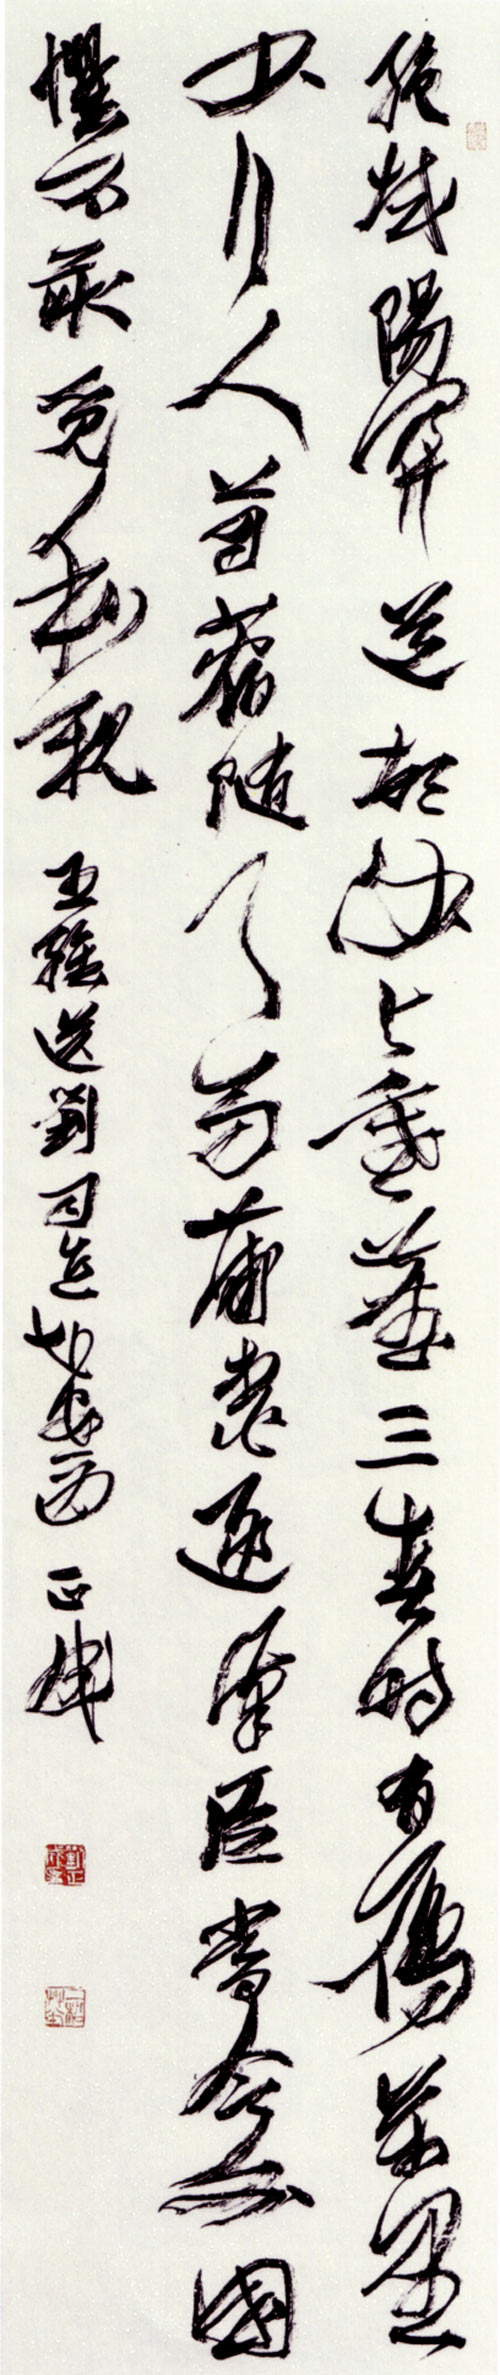 絶域陽關道胡沙与塞塵三春時有雁萬里
少行人苜蓿隨天馬蒲萄逐漢臣當令外國
懼不敢覓和親 王維送劉司直赴安西 正成